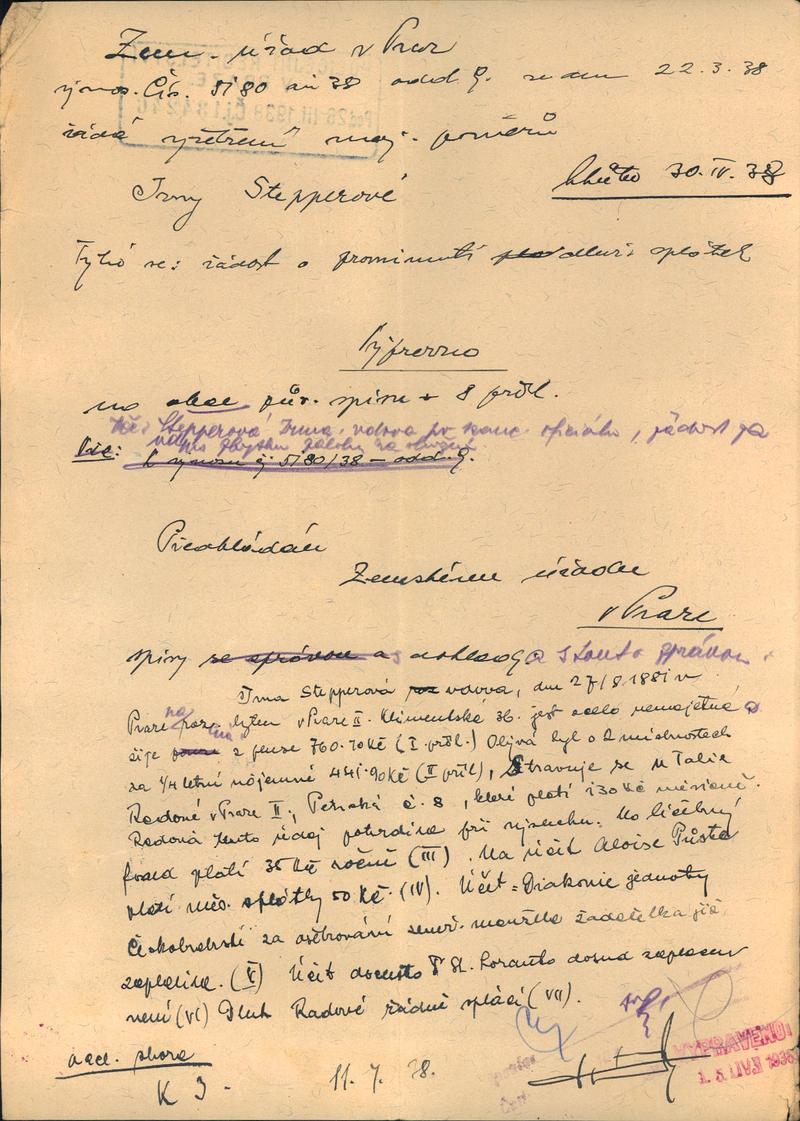 Zem. úřad v Praze
výnos. Čís. 5180 ai 38 odd. 9. ze dne 22.3.38
žádá vyšetření maj. poměrů
Irmy Stepperové
lhůta 30.IV.38
Týká se: žádost o prominutí dluž. splátek
Výpravno
na obce pův. spisu + 8 příl.
Stepperová Irma, vdova po kanc. oficiálu, žádost za
Věc: k výnosu čj 5180/38 – odd. 9.
Předkládám
Zemskému úřadu
v Praze
spisy se zprávou a s touto zprávou.
Irma Stepperová vdova, dne 27/8.1881 v
Praze nar. bytem v Praze II. Klimentská 36. jest zcela nemajetná a
žije z pense 760.70 Kč (I příl.) Obývá byt o 2 místnostech
za 1/4 letní nájemné 441.90 Kč (II příl), Stravuje se u Talie
Radové v Praze II, Petrská č. 8, které platí 130 Kč měsíčně.
Radová tento údaj potvrdila při výslechu. Na léčebný
fond platí 35 Kč ročně (III). Na účit Aloise Půsta
platí měs. splátky 50 Kč. (IV). Účet Diakonie jednoty
Českobratrské za ošetřování zemř. manžela žadatelka již
zaplatila. (V) Účit docenta Dr St. Loranta dosud zaplacen
není (VI) Dluh Radové řádně splácí (VII).
VYPRAVENO:
K 3.
11. 7. 38.